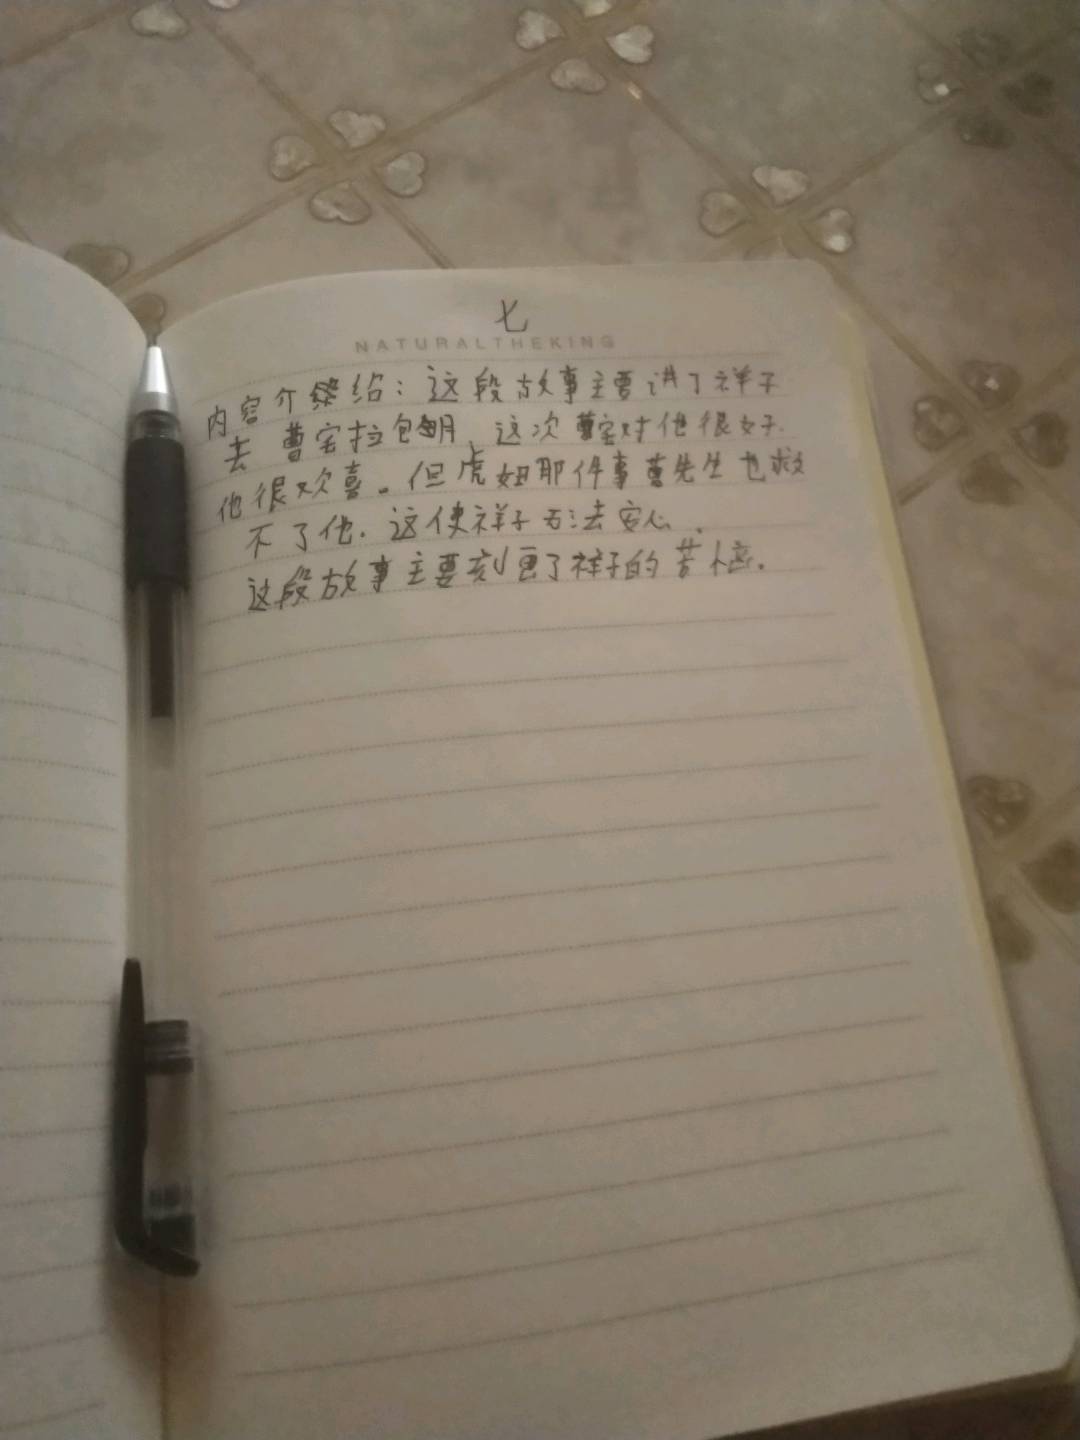 七
NATURALTHEKING
内容介绍：这段故事主要讲了祥子
去曹宅拉包月，这次曹宅对他很好.
他很欢喜。但虎妞那件事曹先生也救
不了他.这使祥子无法安心.
这段故事主要刻画了祥子的苦恼.